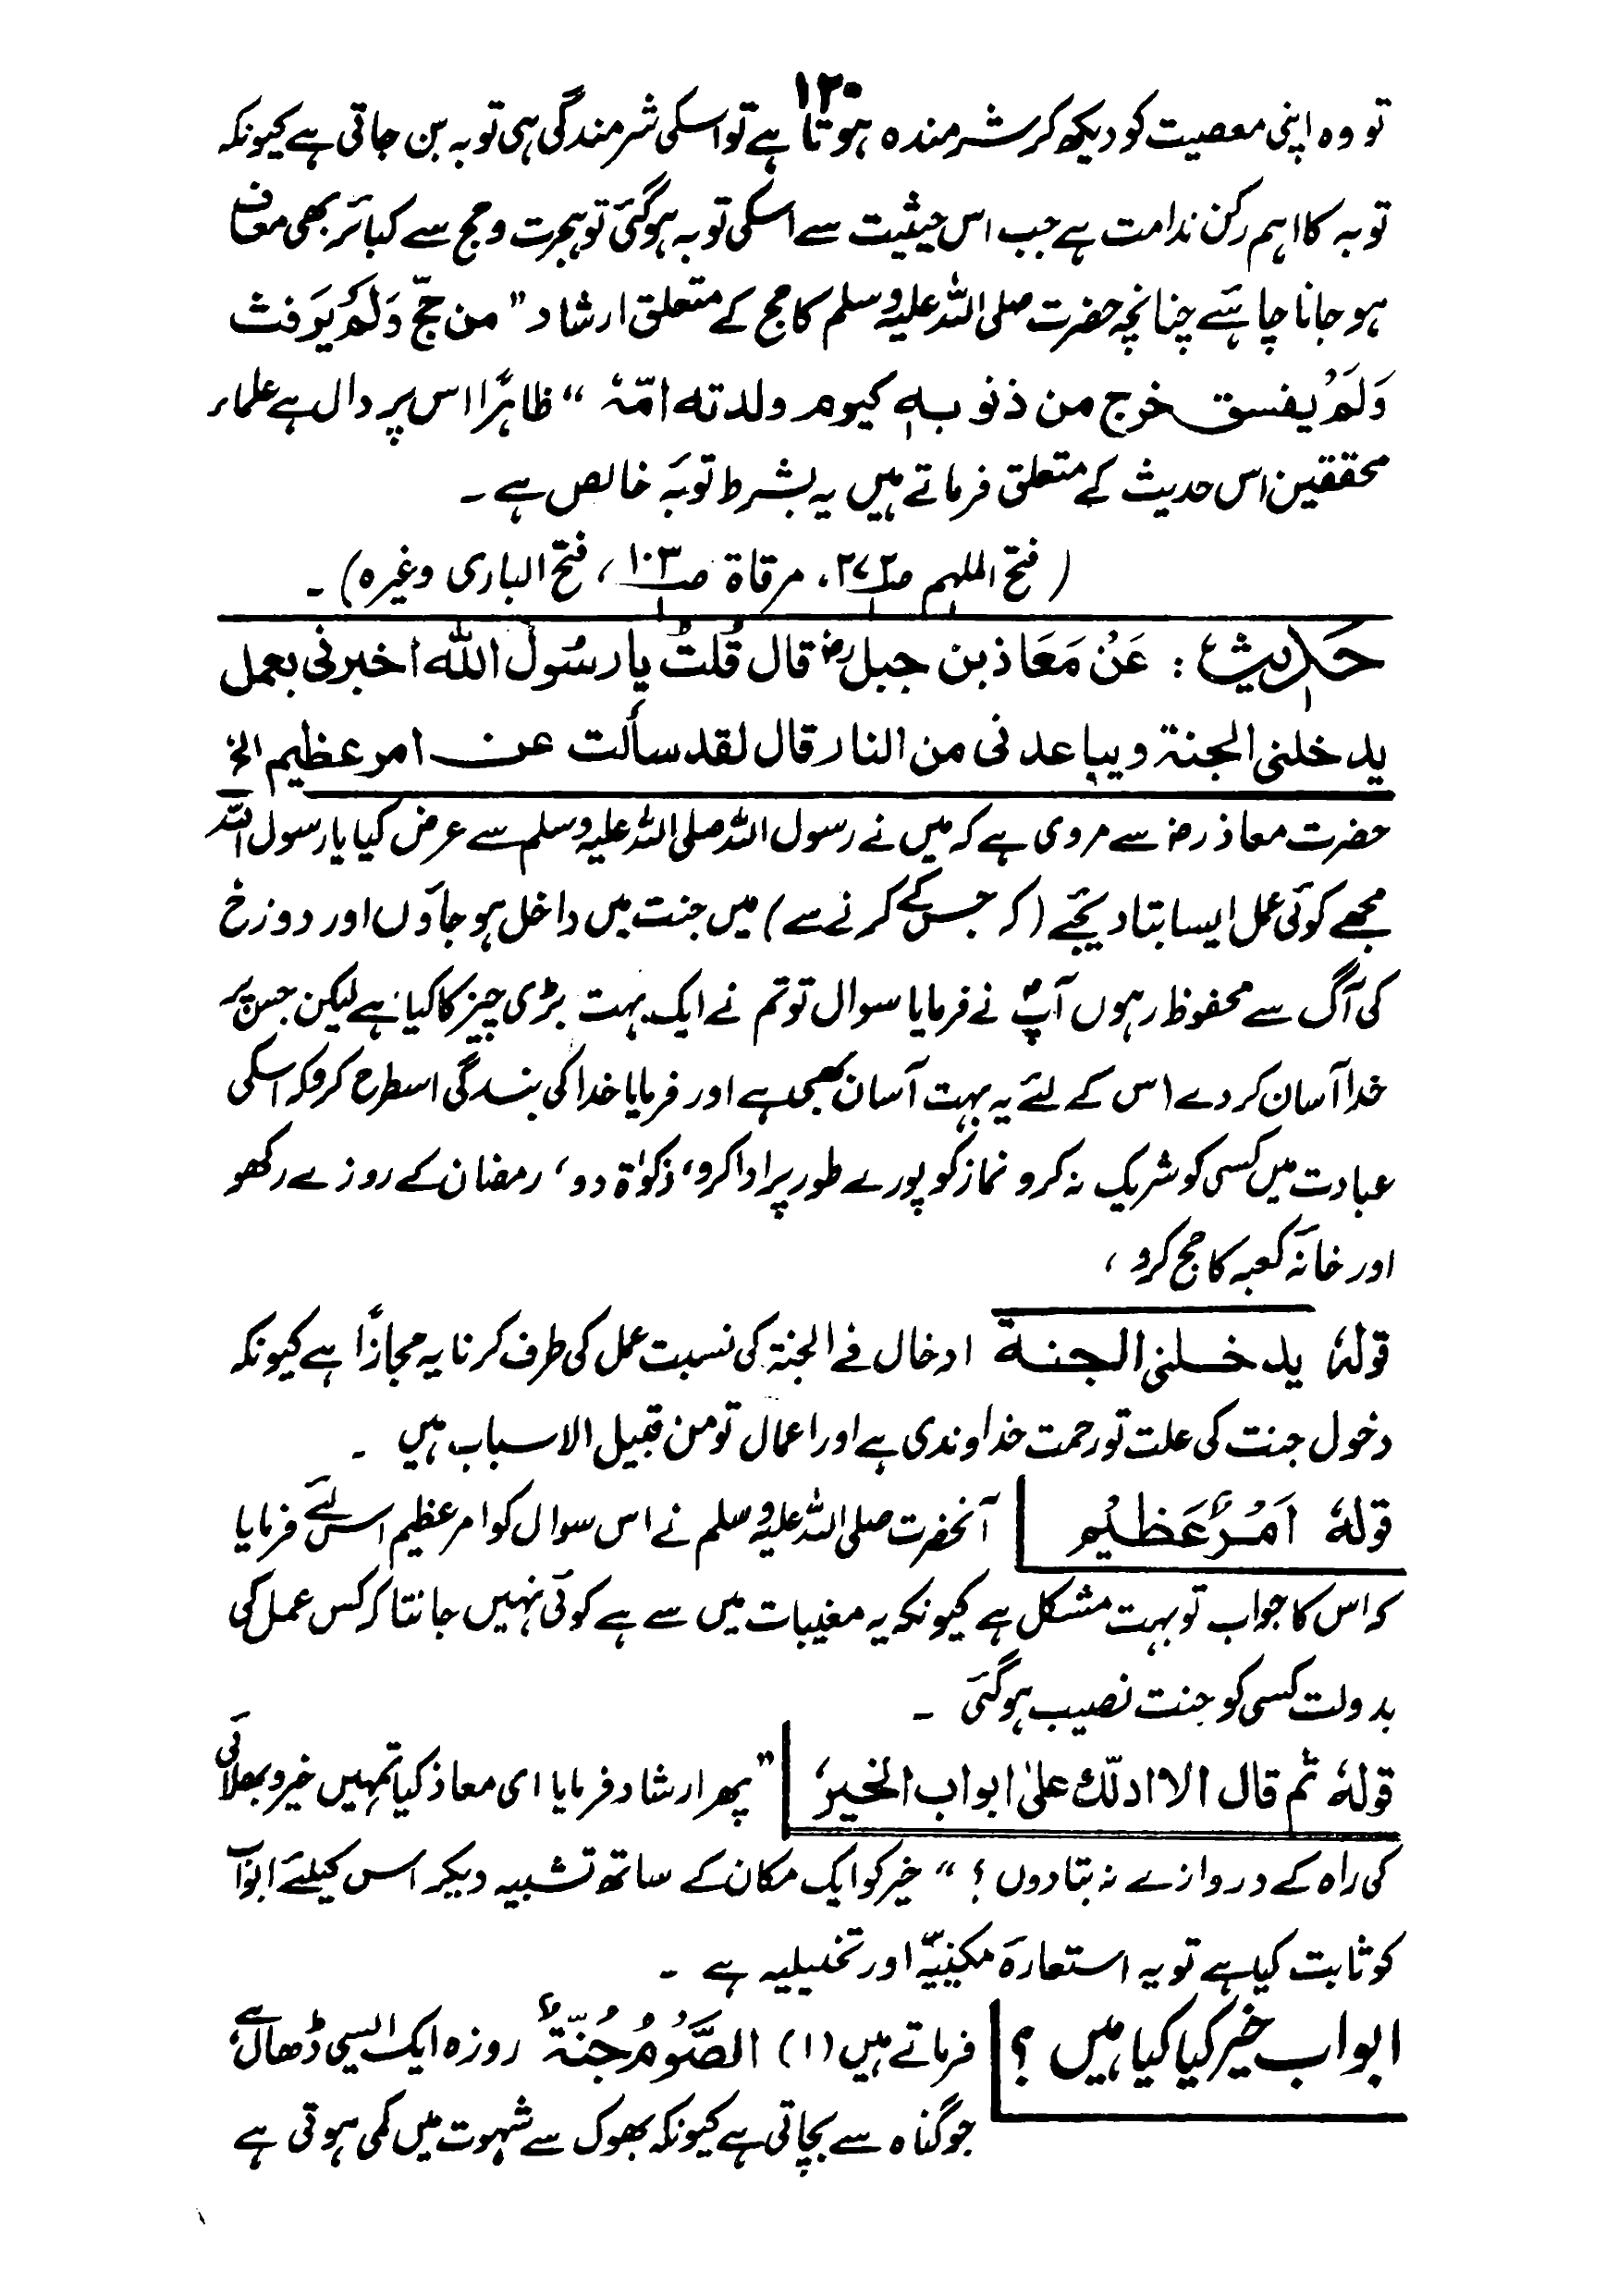 ۱۲۰
تو وہ اپنی معصیت کو دیکھ کر شرمندہ ہوتا ہے تو اسکی شرمندگی ہی توبہ بن جاتی ہے کیونکہ
توبہ کا اہم رکن ندامت ہے جب اس حیثیت سے اسکی توبہ ہوگئی تو ہجرت و حج سے کبائر بھی معاف
ہو جانا چاہئے چنانچہ حضرت صلی اللہ علیہ وسلم کا حج کے متعلق ارشاد ” من حجّ وَلَمْ یَرفث
وَلَمْ یُفسق خرج من ذنوبہٖ کیوم ولدتہ امّہٗ “ ظاہرًا اس پر دال ہے علماء
محققین اس حدیث کے متعلق فرماتے ہیں یہ بشرط توبۂ خالص ہے ۔
( فتح الملہم ص۲۷۲، مرقاۃ ص۱۰۳، فتح الباری وغیرہ) ۔
حَدِیثؑ : عَنْ مَعَاذ بن جبل رض قال قُلتُ یا رسُول اللہ اخبرنی بعمل
یدخلنی الجنۃ ویباعدنی من النار قال لقد سألت عن امر عظیم الخ
حضرت معاذ رض سے مروی ہے کہ میں نے رسول اللہ صلی اللہ علیہ وسلم سے عرض کیا یا رسول اللہ
مجھے کوئی عمل ایسا بتا دیجئے (کہ جس کے کرنے سے) میں جنت میں داخل ہو جاؤں اور دوزخ
کی آگ سے محفوظ رہوں آپؐ نے فرمایا سوال تو تم نے ایک بہت بڑی چیز کا کیا ہے لیکن جس پر
خدا آسان کر دے اس کے لئے یہ بہت آسان بھی ہے اور فرمایا خدا کی بندگی اسطرح کرو کہ اسکی
عبادت میں کسی کو شریک نہ کرو نماز کو پورے طور پر ادا کرو، زکوٰۃ دو، رمضان کے روزے رکھو
اور خانۂ کعبہ کا حج کرو ،
قولہٗ یدخلنی الجنۃ ادخال فے الجنۃ کی نسبت عمل کی طرف کرنا یہ مجازًا ہے کیونکہ
دخول جنت کی علت تو رحمت خداوندی ہے اور اعمال تو من قبیل الاسباب ہیں ۔
قولہٗ اَمْرٌ عَظِیْم آنحضرت صلی اللہ علیہ وسلم نے اس سوال کو امر عظیم اسلئے فرمایا
کہ اس کا جواب تو بہت مشکل ہے کیونکہ یہ مغیبات میں سے ہے کوئی نہیں جانتا کہ کس عمل کی
بدولت کسی کو جنت نصیب ہوگئی ۔
قولہٗ ثم قال الا ادلّک علیٰ ابواب الخیرِ ” پھر ارشاد فرمایا ای معاذ کیا تمہیں خیر و بھلائی
کی راہ کے دروازے نہ بتا دوں ؟ “ خیر کو ایک مکان کے ساتھ تشبیہ دیکر اس کیلئے ابواب
کو ثابت کیا ہے تو یہ استعارۂ مکنیّہ اور تخییلیہ ہے ۔
ابواب خیر کیا کیا ہیں ؟ فرماتے ہیں (۱) الصَّوْمُ جُنّۃٌ روزہ ایک ایسی ڈھال ہے
جو گناہ سے بچاتی ہے کیونکہ بھوک سے شہوت میں کمی ہوتی ہے